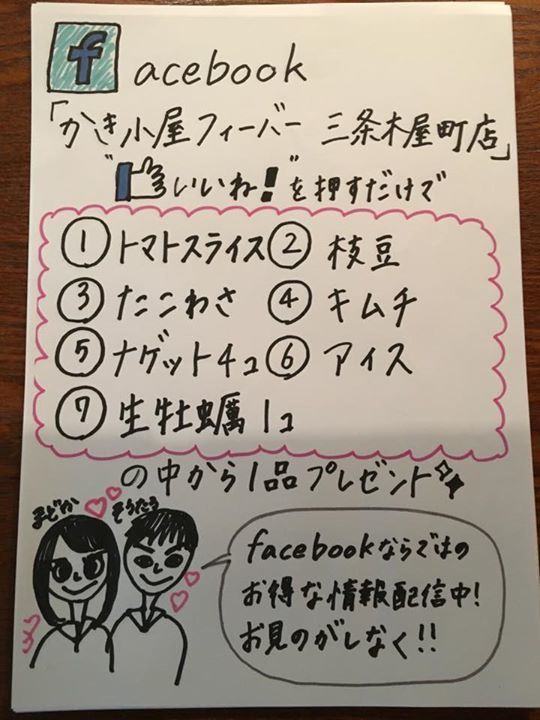 facebook
「かき小屋フィーバー 三条木屋町店」
"いいね!"を押すだけで
① トマトスライス ② 枝豆
③ たこわさ ④ キムチ
⑤ ナゲット4コ ⑥ アイス
⑦ 生牡蠣1コ
の中から1品プレゼント
まどか そうたろう
facebookならではの
お得な情報配信中!
お見のがしなく!!